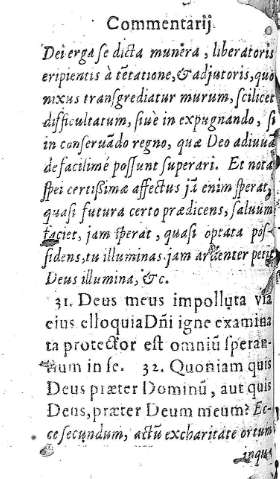 Commentarij
Dei erga se dicta munera, liberatoris
eripientis à tẽtatione, & adjutoris, quo
nixus transgrediatur murum, scilicet
difficultatum, siue in expugnando, si
in conseruãdo regno, quæ Deo adiuuã
de facilimè possunt superari. Et nota
spei certissimæ affectus jã enim sperat,
quasi futura certo prædicens, saluum
faciet, jam sperat, quasi optata pos-
sidens, tu illuminas. jam ardenter petit
Deus illumina, &c.
31. Deus meus impolluta via
eius elloquia Dñi igne examina
ta protector est omniũ speran-
tium in se. 32. Quoniam quis
Deus præter Dominũ, aut quis
Deus, præter Deum meum? Ec-
ce secundum, actũ ex charitate ortum
inqua